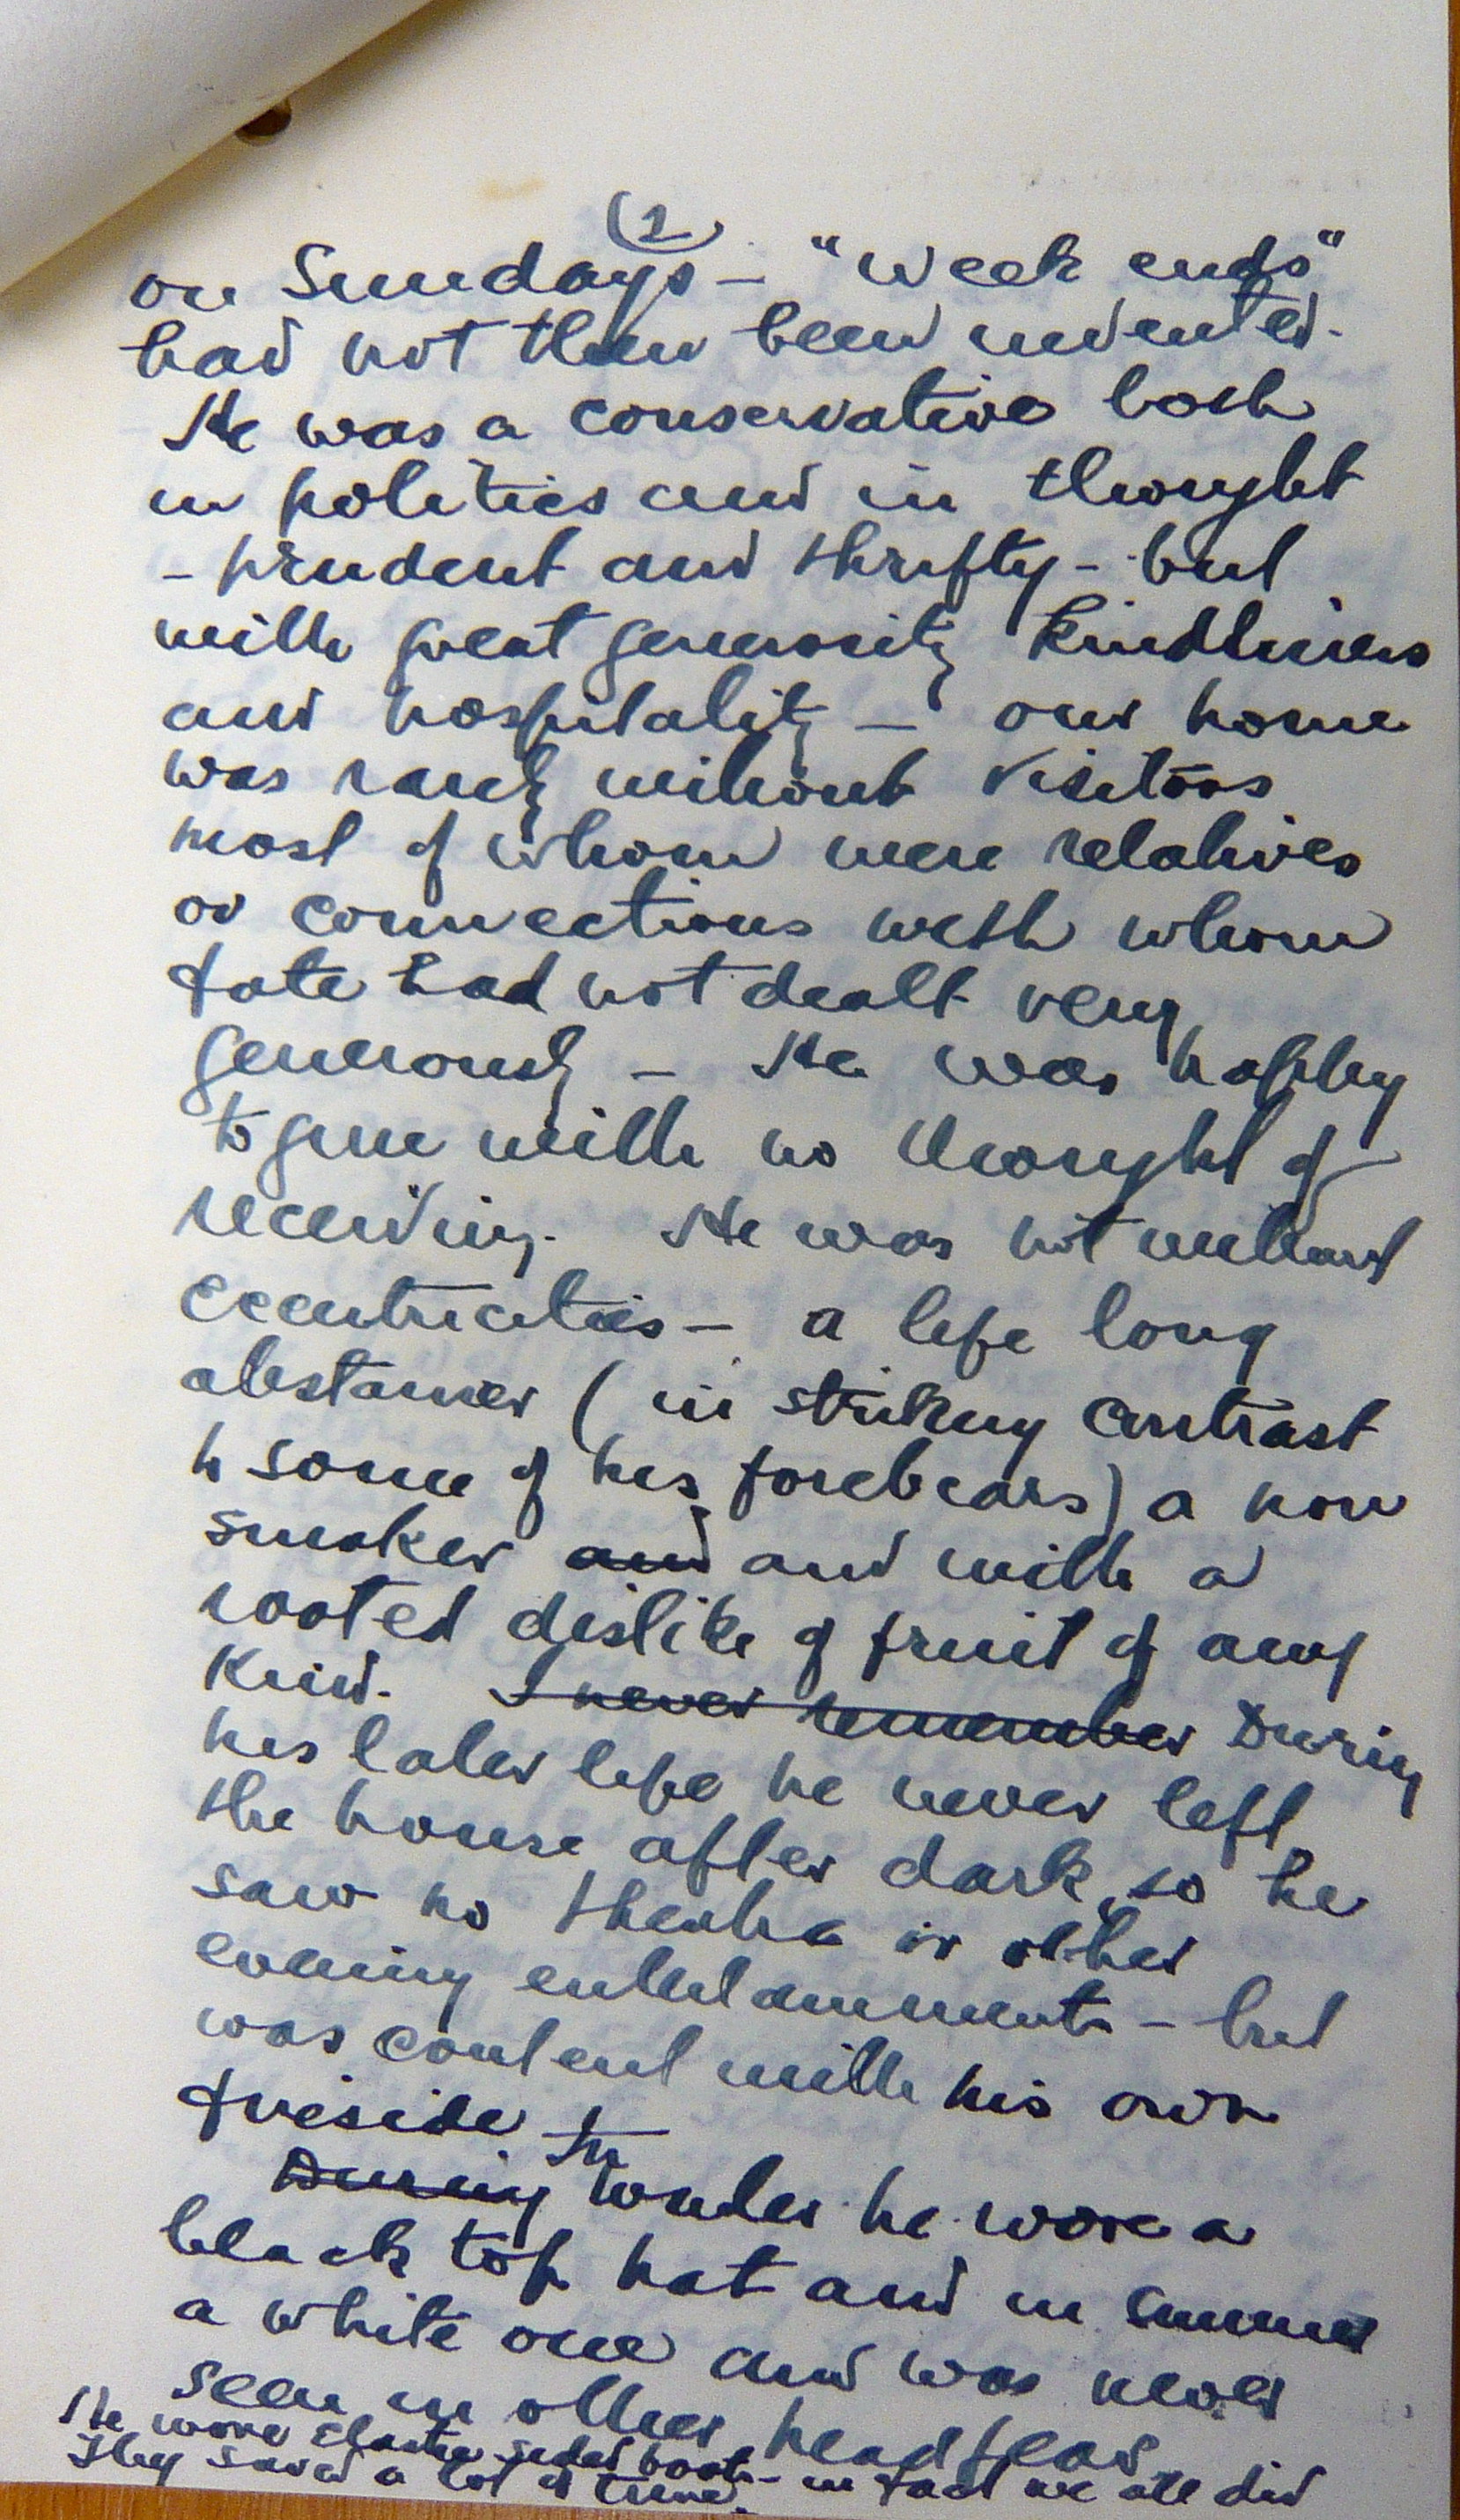 (2)
on Sundays – "week ends"
had not then been invented.
He was a conservative both
in politics and in thought
– prudent and thrifty – but
with great generosity kindliness
and hospitality – our home
was rarely without visitors
most of whom were relatives
or connections with whom
fate had not dealt very
generously – He was happy
to give with no thought of
receiving. He was not without
eccentricities – a life long
abstainer (in striking contrast
to some of his forebears) a non
smoker and and with a
rooted dislike of fruit of any
kind. I never remember During
his later life he never left
the house after dark, so he
saw no theatre or other
evening entertainments – but
was content with his own
fireside.
During In winter he wore a
black top hat and in summer
a white one and was never
seen in other headgear
He wore elastic sided boots – in fact we all did
They saved a lot of time.